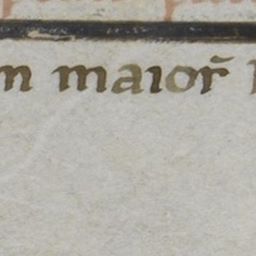 m maior̃